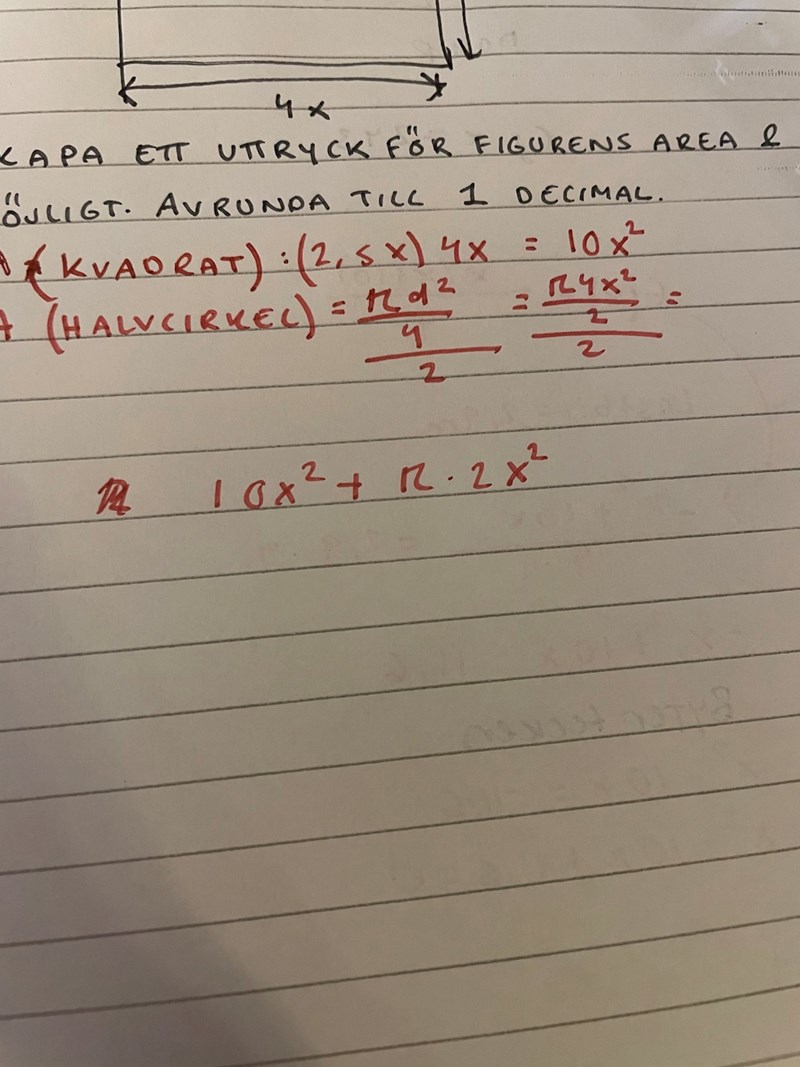 4x
KAPA ETT UTTRYCK FÖR FIGURENS AREA &
ÖJLIGT. AVRUNDA TILL 1 DECIMAL.
A (KVADRAT): (2,5x) 4x = 10x²
A (HALVCIRKEL) = πd²/4/2 = π4x²/2/2 =
10x² + π · 2x²